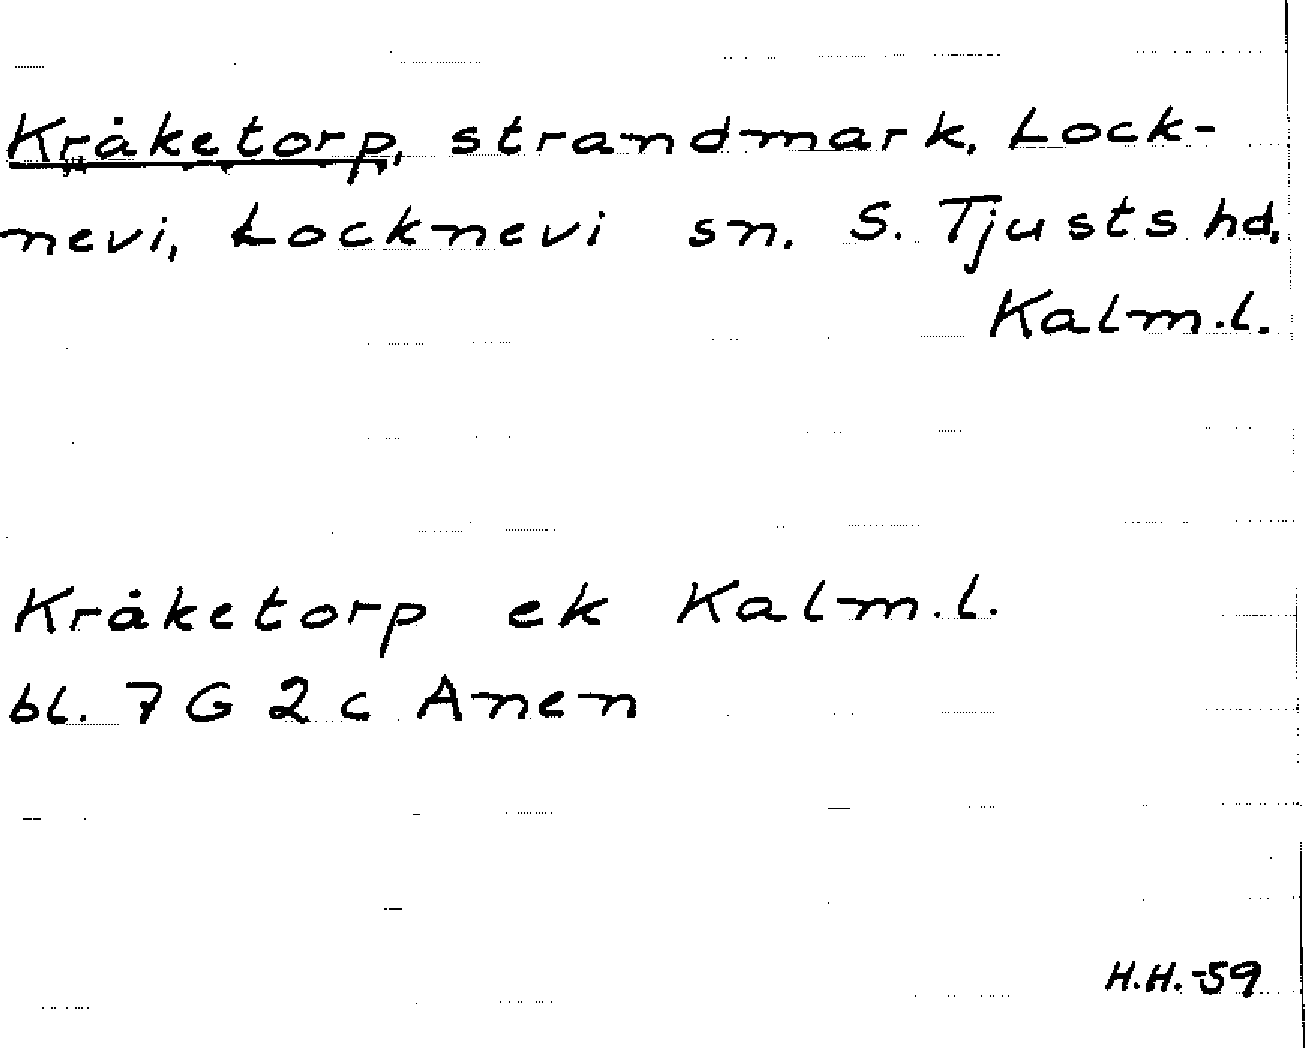 Kråketorp, strandmark, Lock-
nevi, Locknevi sn. S. Tjusts hd.
Kalm.l.
Kråketorp ek Kalm.l.
bl. 7 G 2 c Anen
H.H.-59